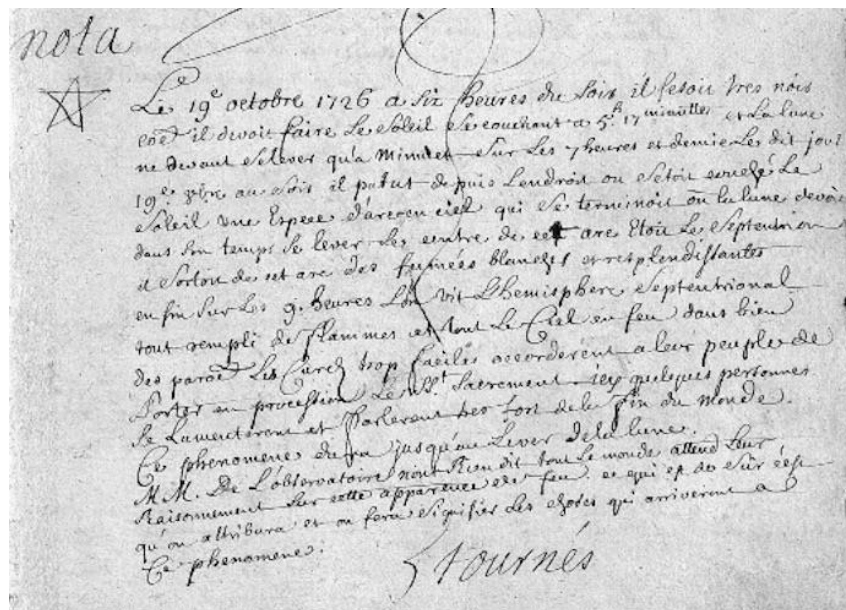 nota
Le 19e octobre 1726 a six heures du soir il fesoit tres noir
coe il devoit faire Le soleil se couchant a 5h 17 minuttes et La lune
ne devant se lever qu'a Minuict sur Les 7 heures et demie Les dit jour
19e 8bre au soir il parut depuis Lendroit ou setoit couché Le
soleil une Espece d'arc en ciel qui se terminoit ou la lune devoit
dans son temps se lever Le centre de cet arc Etoit Le Septentrion
il sortoit de cet arc des fumées blanches et resplendissantes
enfin sur Les 9. heures Lon vit L'hemisphere septentrional
tout rempli de flammes et tout Le Ciel en feu dans bien
des paroes Les Curez trop faciles accorderent a leur peuple de
Porter en procession Le st Sacrement icy quelques personnes
se Lamenterent et parlerent tres fort de la fin du monde.
Ce phenomene dura jusqu'au Lever de la lune.
M.M. De L'observatoire n'ont Rien dit tout Le monde attend Leur
Raisonnement sur cette apparence de feu. ce qui est de sûr c'est
qu'on attribura et on fera signifier Les choses qui arriveront a
Ce phenomene.
Stournés